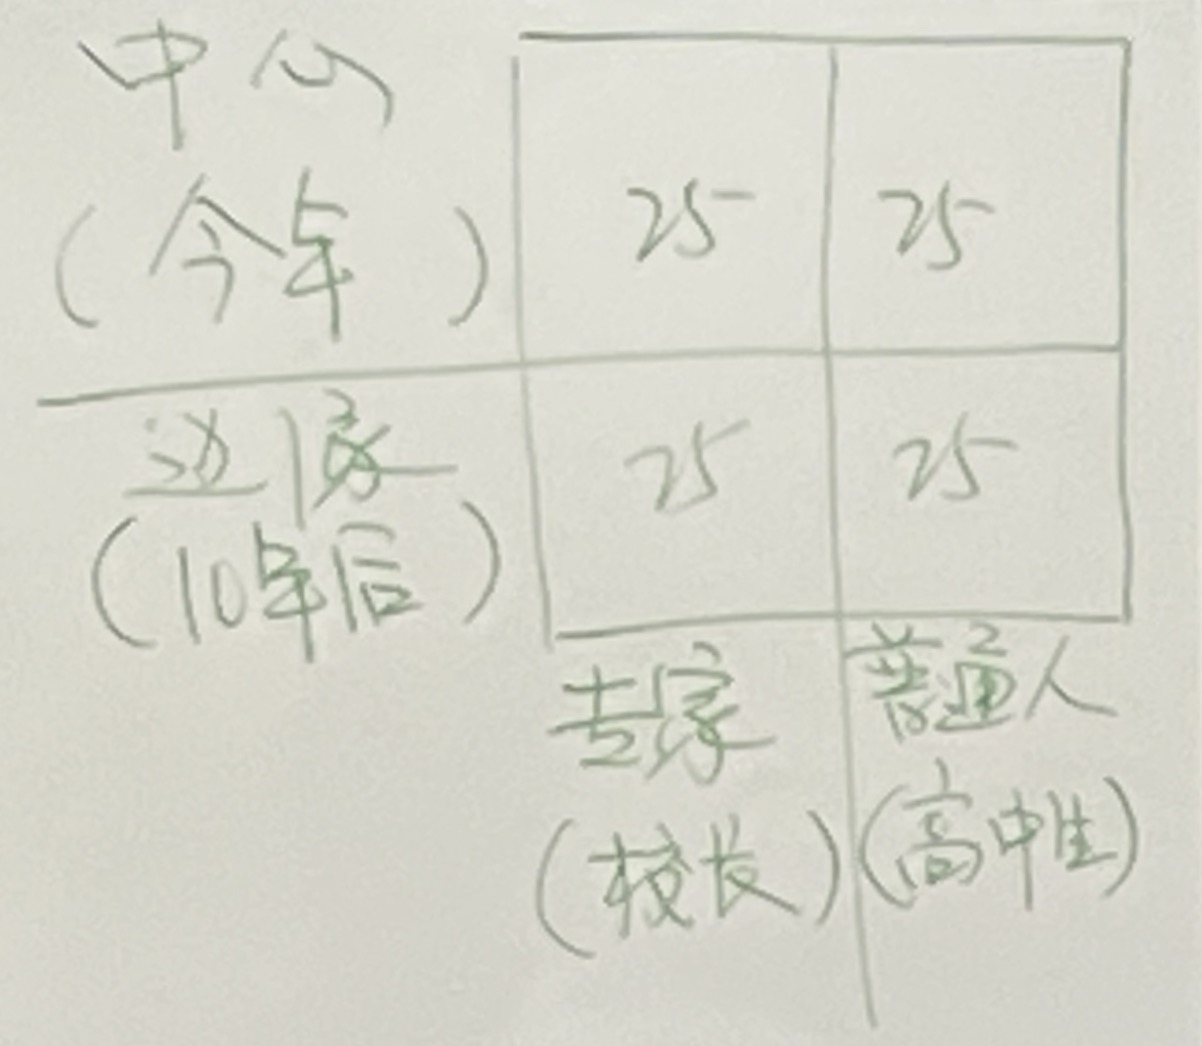 中心
(今年)
25 25
边缘
(10年后)
25 25
专家 普通人
(校长) (高中生)